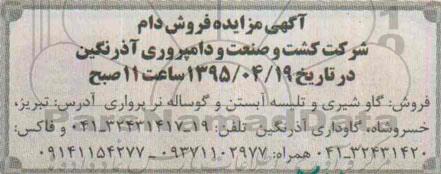 آگهی مزایده فروش دام
شرکت کشت و صنعت و دامپروری آذرنگین
در تاریخ ۱۳۹۵/۰۴/۱۹ ساعت ۱۱ صبح
فروش: گاو شیری و تلیسه آبستن و گوساله نر پرواری آدرس: تبریز،
خسروشاه، گاوداری آذرنگین تلفن: ۱۹-۳۲۴۳۱۴۱۷-۰۴۱ و فاکس:
۳۲۴۳۱۴۲۰-۰۴۱ همراه: ۰۹۳۷۱۱۰۲۹۷۷ - ۰۹۱۴۱۱۵۴۲۷۷
ParsNamadData